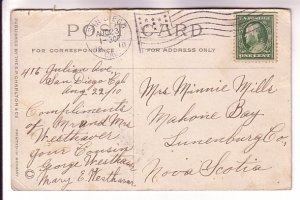 POST CARD
FOR CORRESPONDENCE
FOR ADDRESS ONLY
416 Julian Ave,
San Diego Cal
Aug. 22/10
Compliments
of Mr. and Mrs
Westhaver
your Cousin
George Westhaver
Mary E. Westhaver
Mrs Minnie Mills
Mahone Bay
Lunenburg Co.
Nova Scotia
ONE CENT